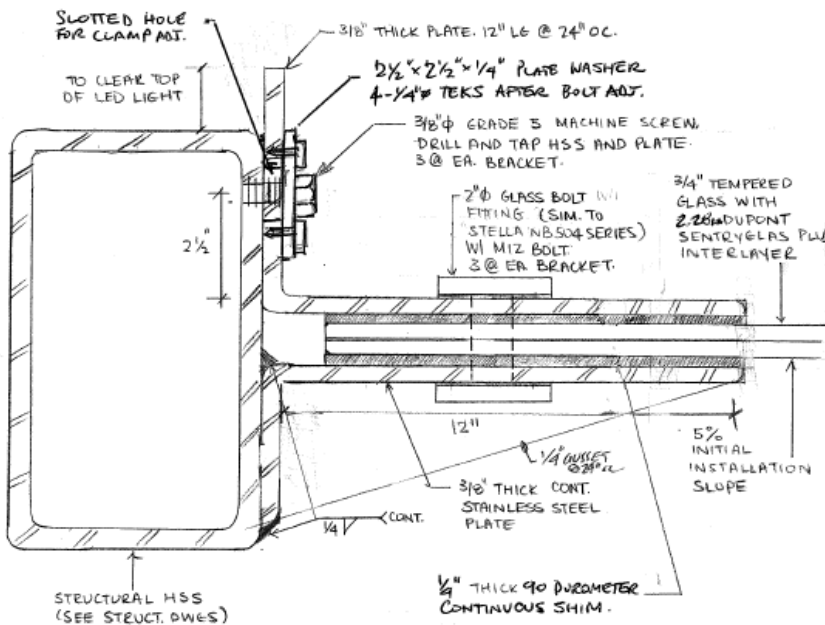 SLOTTED HOLE
FOR CLAMP ADJ.
3/8" THICK PLATE. 12" LG @ 24" OC.
TO CLEAR TOP
OF LED LIGHT
2½" x 2½" x ¼" PLATE WASHER
4-¼"φ TEKS AFTER BOLT ADJ.
3/8"φ GRADE 5 MACHINE SCREW,
DRILL AND TAP HSS AND PLATE.
3@ EA. BRACKET.
2"φ GLASS BOLT
FITTING (SIM. TO
STELLA NB504 SERIES)
W/ M12 BOLT
3@ EA BRACKET.
3/4" TEMPERED
GLASS WITH
DUPONT
SENTRYGLAS
INTERLAYER
2½"
12"
¼" GUSSET
5%
INITIAL
INSTALLATION
SLOPE
3/8" THICK CONT.
STAINLESS STEEL
PLATE
1/4 CONT.
STRUCTURAL HSS
(SEE STRUCT. DWGS)
THICK 90 DUROMETER
CONTINUOUS SHIM.